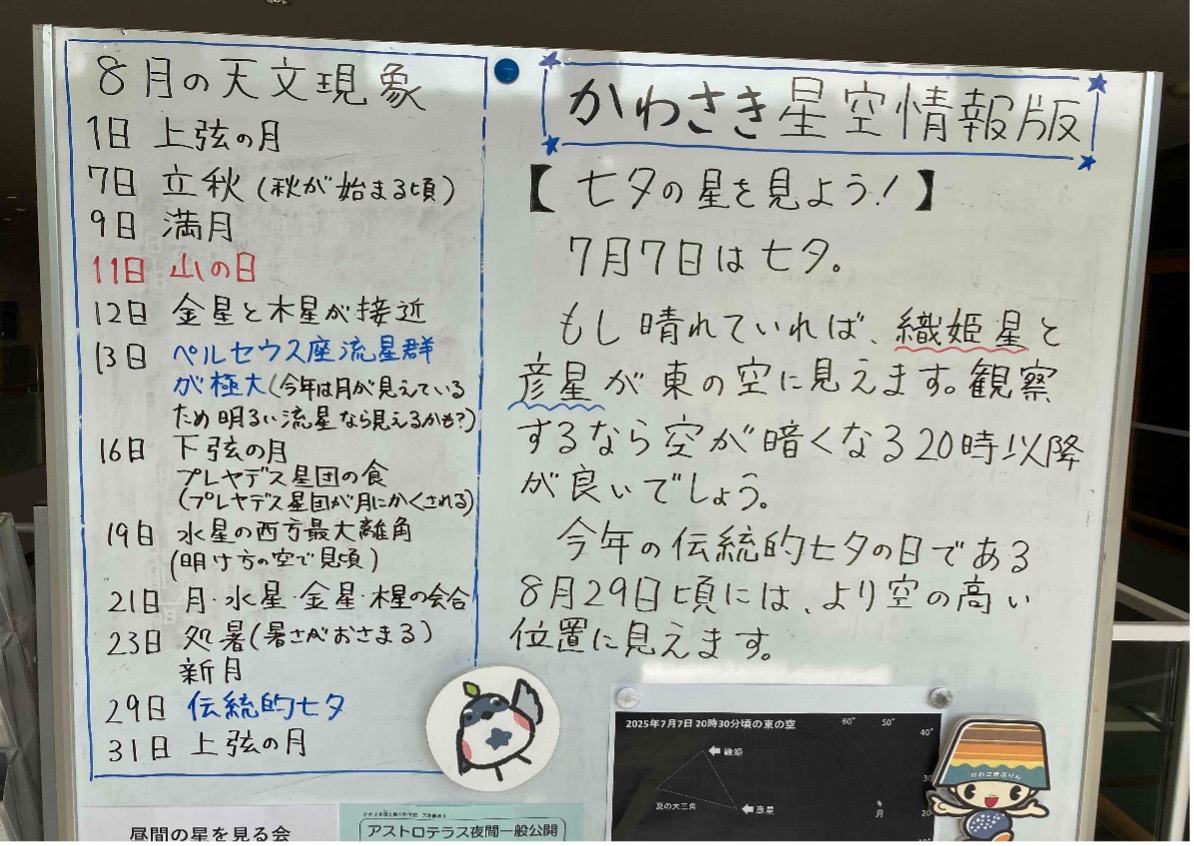 8月の天文現象
1日 上弦の月
7日 立秋(秋が始まる頃)
9日 満月
11日 山の日
12日 金星と木星が接近
13日 ペルセウス座流星群
が極大(今年は月が見えている
ため明るい流星なら見えるかも?)
16日 下弦の月
プレヤデス星団の食
(プレヤデス星団が月にかくされる)
19日 水星の西方最大離角
(明け方の空で見頃)
21日 月・水星・金星・木星の会合
23日 処暑(暑さがおさまる)
新月
29日 伝統的七夕
31日 上弦の月
かわさき星空情報版
【七夕の星を見よう!】
7月7日は七夕。
もし晴れていれば、織姫星と
彦星が東の空に見えます。観察
するなら空が暗くなる20時以降
が良いでしょう。
今年の伝統的七夕の日である
8月29日頃には、より空の高い
位置に見えます。
2025年7月7日 20時30分頃の東の空
60°
50°
40°
織姫
30
夏の大三角
彦星
月
20
かわさきぷりん
昼間の星を見る会
アストロテラス夜間一般公開